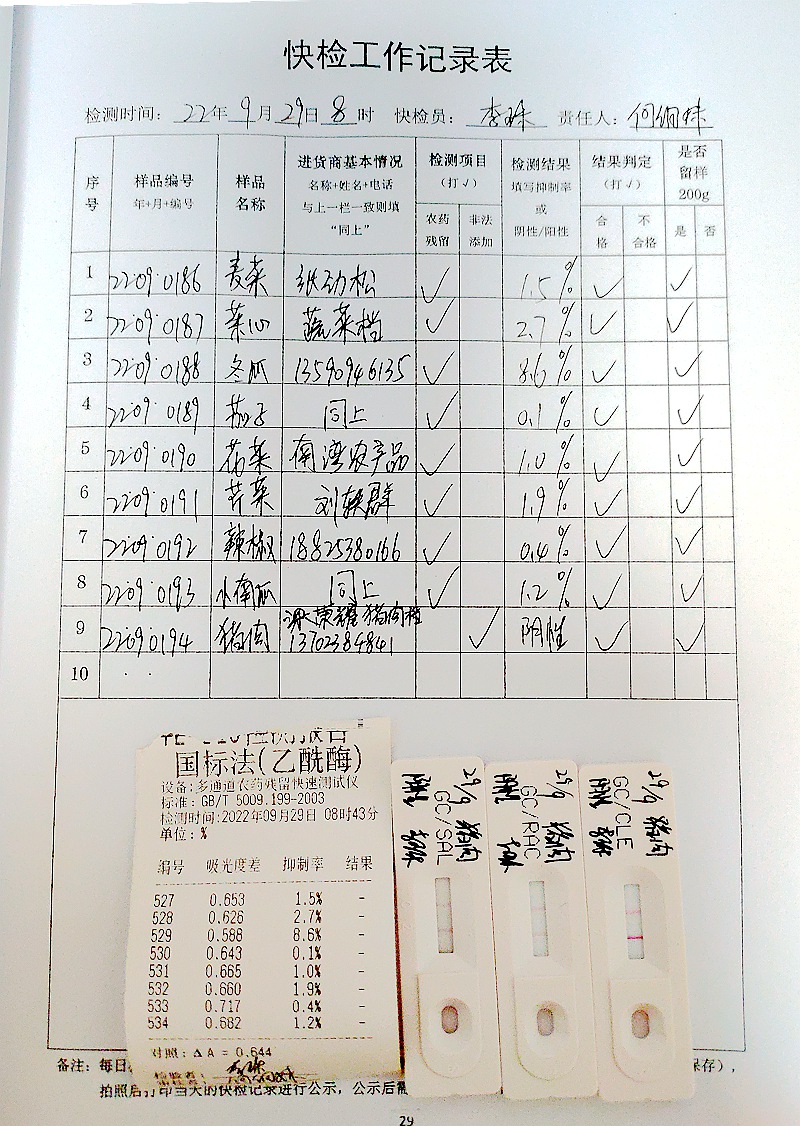 快检工作记录表
检测时间: 22年 9月 29日 8时 快检员: 李珠 责任人:
序号 样品编号 年+月+编号 样品名称 进货商基本情况 名称+姓名+电话 与上一栏一致则填 “同上” 检测项目 (打√) 检测结果 填写抑制率 或 阴性/阳性 结果判定 (打√) 是否留样 200g
农药残留 非法添加 合格 不合格 是 否
1 22090186 麦菜 劲松 ✓ 1.5% ✓ ✓
2 22090187 菜心 蔬菜档 ✓ 2.7% ✓ ✓
3 22090188 冬瓜 13590946135 ✓ 8.6% ✓ ✓
4 22090189 茄子 同上 ✓ 0.1% ✓ ✓
5 22090190 花菜 南湾农产品 ✓ 1.0% ✓ ✓
6 22090191 芹菜 刘轶群 ✓ 1.9% ✓ ✓
7 22090192 辣椒 18825380166 ✓ 0.4% ✓ ✓
8 22090193 小南瓜 同上 ✓ 1.2% ✓ ✓
9 22090194 猪肉 荣耀猪肉档 13702384841 ✓ 阴性 ✓ ✓
10
国标法(乙酰酶)
设备:多通道农药残留快速测试仪
标准: GB/T 5009.199-2003
检测时间:2022年09月29日 08时43分
单位: %
编号 吸光度差 抑制率 结果
527 0.653 1.5% -
528 0.626 2.7% -
529 0.588 8.6% -
530 0.643 0.1% -
531 0.665 1.0% -
532 0.660 1.9% -
533 0.717 0.4% -
534 0.682 1.2% -
对照: ΔA = 0.644
检验者:
29/9 猪肉
GC/SAL
29/9 猪肉
GC/RAC
29/9 猪肉
GC/CLE
备注: 每日
保存),
拍照后打印当天的快检记录进行公示,公示后需
29